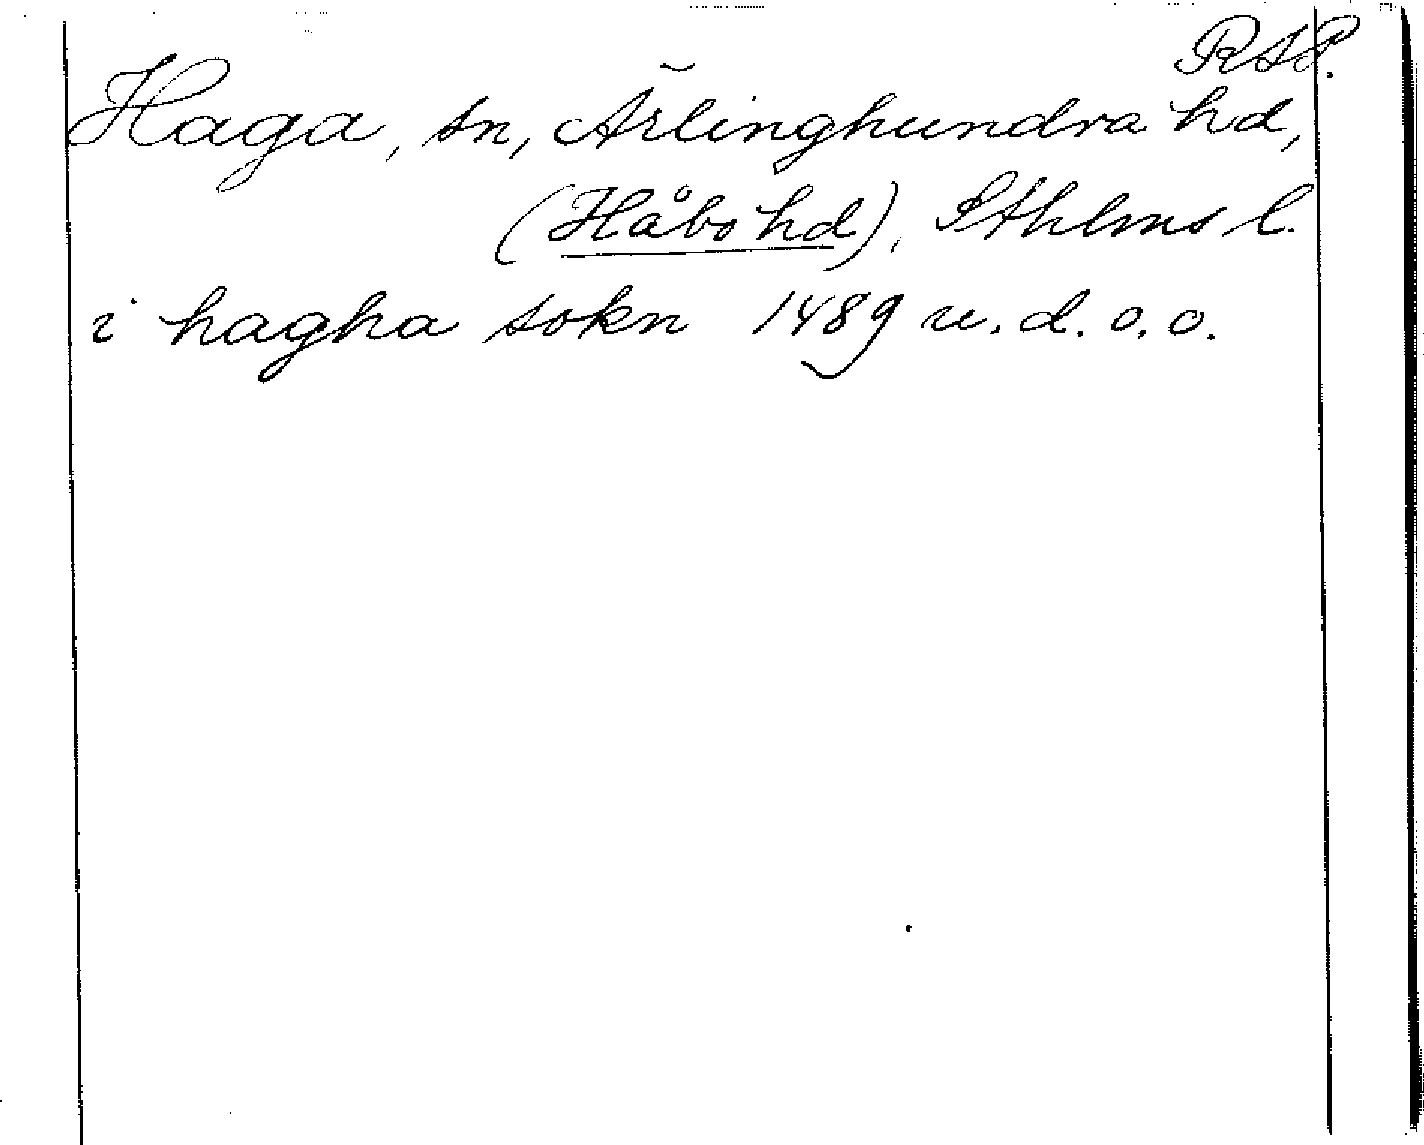 RAP.
Haga, sn, Ärlinghundra hd,
(Håbo hd), Sthlms l.
i hagha sokn 1489 u. d. o. o.